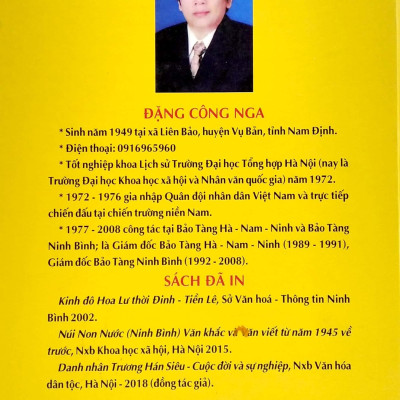 ĐẶNG CÔNG NGA
* Sinh năm 1949 tại xã Liên Bảo, huyện Vụ Bản, tỉnh Nam Định.
* Điện thoại: 0916965960
* Tốt nghiệp khoa Lịch sử Trường Đại học Tổng hợp Hà Nội (nay là
Trường Đại học Khoa học xã hội và Nhân văn quốc gia) năm 1972.
* 1972 - 1976 gia nhập Quân đội nhân dân Việt Nam và trực tiếp
chiến đấu tại chiến trường niền Nam.
* 1977 - 2008 công tác tại Bảo Tàng Hà - Nam - Ninh và Bảo Tàng
Ninh Bình; là Giám đốc Bảo Tàng Hà - Nam - Ninh (1989 - 1991),
Giám đốc Bảo Tàng Ninh Bình (1992 - 2008).
SÁCH ĐÃ IN
Kinh đô Hoa Lư thời Đinh - Tiền Lê, Sở Văn hoá - Thông tin Ninh
Bình 2002.
Núi Non Nước (Ninh Bình) Văn khắc và văn viết từ năm 1945 về
trước, Nxb Khoa học xã hội, Hà Nội 2015.
Danh nhân Trương Hán Siêu - Cuộc đời và sự nghiệp, Nxb Văn hóa
dân tộc, Hà Nội - 2018 (đồng tác giả).